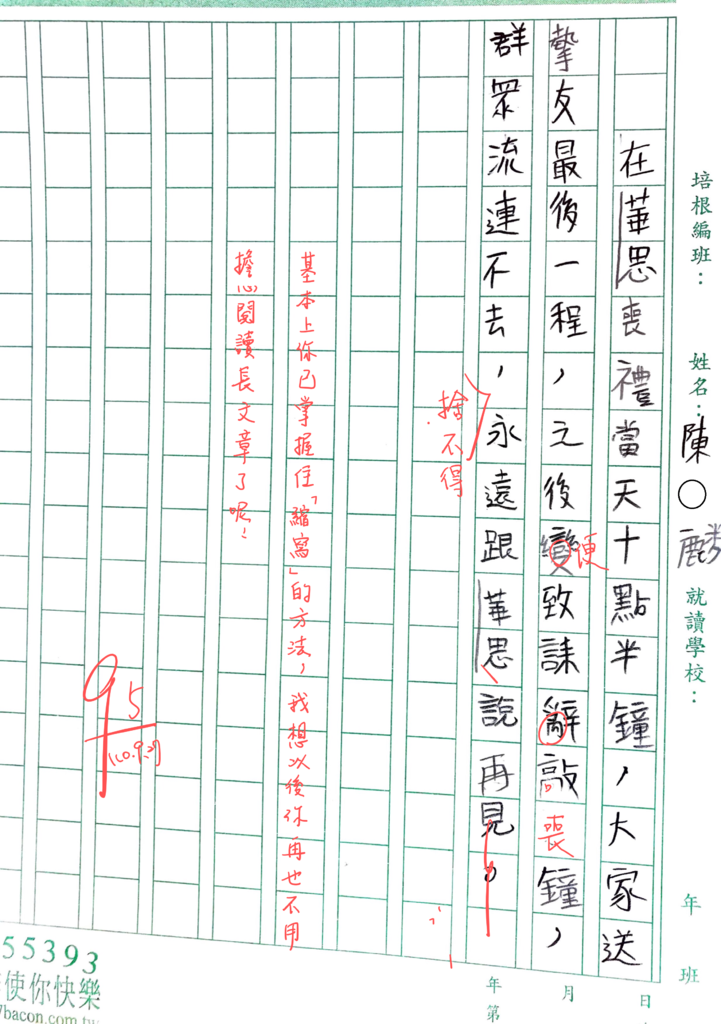 培根編班： 姓名：陳○麟 就讀學校： 年 班
在華思喪禮當天十點半鐘，大家送
摯友最後一程，之後變致誄辭敲鐘，
便
喪
群眾流連不去，永遠跟華思說再見。
捨不得
基本上你已掌握住「縮寫」的方法，我想以後你再也不用
擔心閱讀長文章了呢！
95
110.9.27
年 月 日
第
55393
使你快樂
7bacon.com.tw